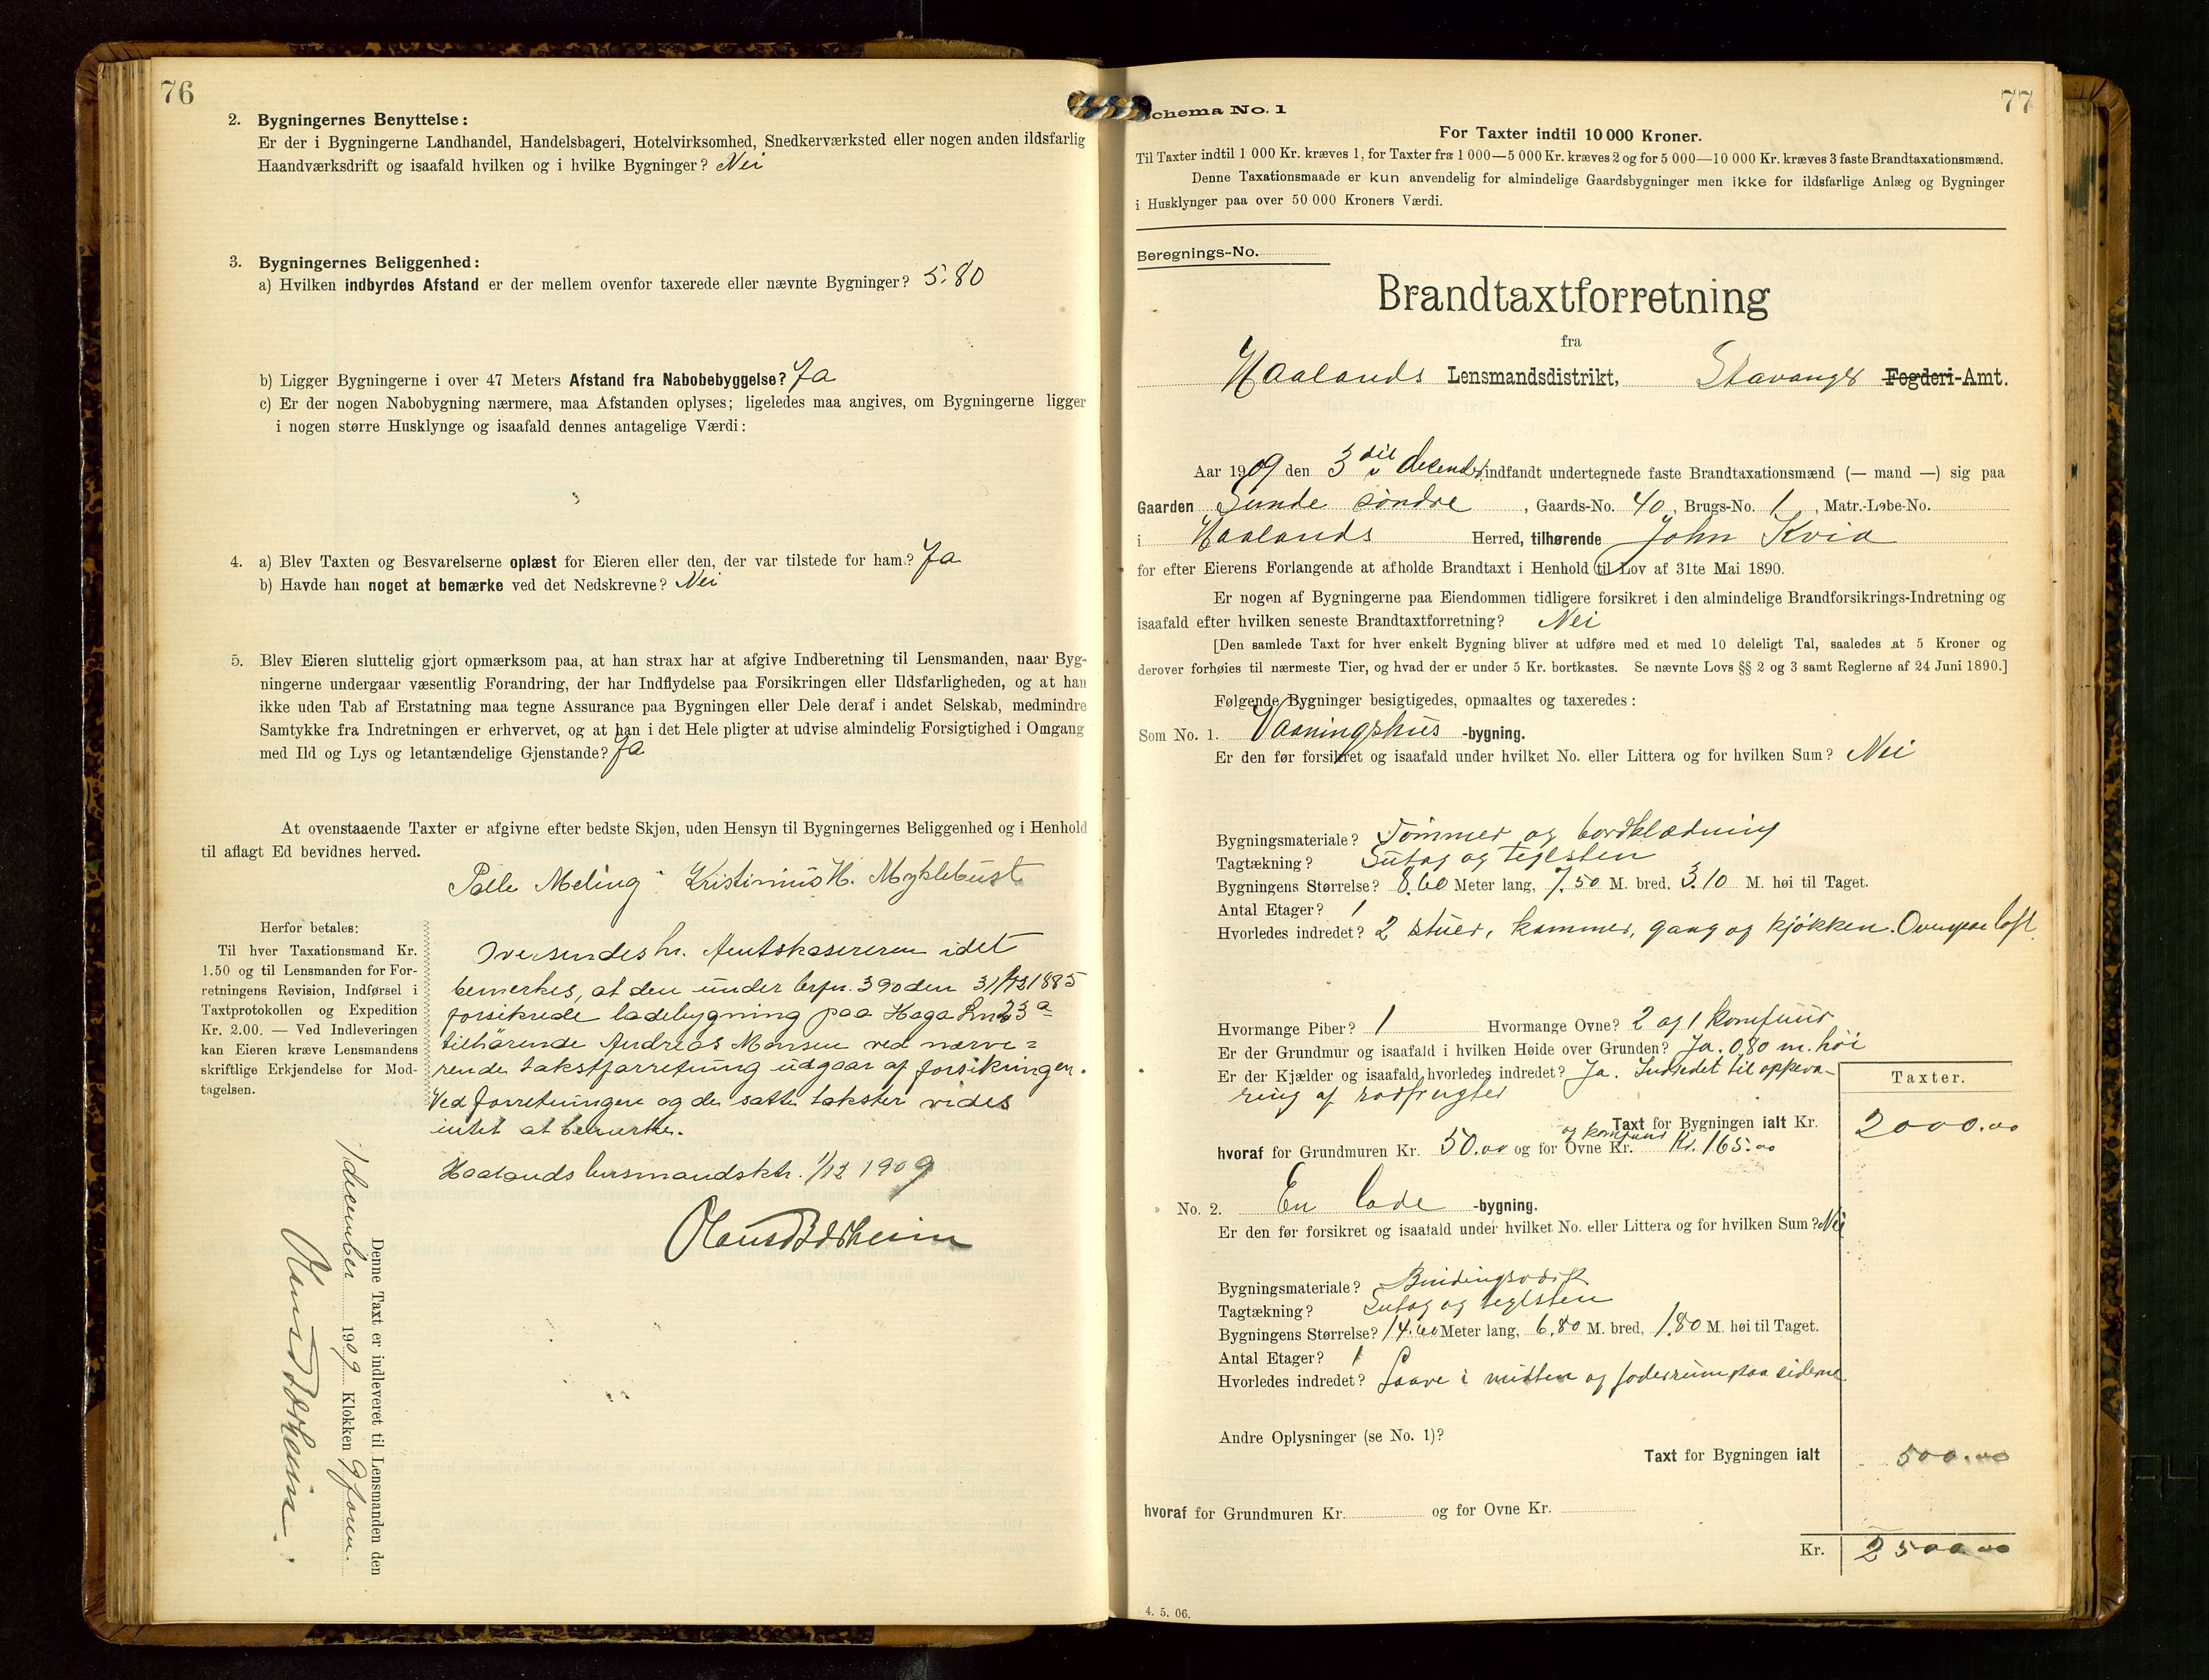 76
2. Bygningernes Benyttelse:
Er der i Bygningerne Landhandel, Handelsbageri, Hotelvirksomhed, Snedkerværksted eller nogen anden ildsfarlig
Haandværksdrift og isaafald hvilken og i hvilke Bygninger? Nei
3. Bygningernes Beliggenhed:
a) Hvilken indbyrdes Afstand er der mellem ovenfor taxerede eller nævnte Bygninger? 5.80
b) Ligger Bygningerne i over 47 Meters Afstand fra Nabobebyggelse? Ja
c) Er der nogen Nabobygning nærmere, maa Afstanden oplyses; ligeledes maa angives, om Bygningerne ligger
i nogen større Husklynge og isaafald dennes antagelige Værdi:
4. a) Blev Taxten og Besvarelserne oplæst for Eieren eller den, der var tilstede for ham? Ja
b) Havde han noget at bemærke ved det Nedskrevne? Nei
5. Blev Eieren sluttelig gjort opmærksom paa, at han strax har at afgive Indberetning til Lensmanden, naar Byg-
ningerne undergaar væsentlig Forandring, der har Indflydelse paa Forsikringen eller Ildsfarligheden, og at han
ikke uden Tab af Erstatning maa tegne Assurance paa Bygningen eller Dele deraf i andet Selskab, medmindre
Samtykke fra Indretningen er erhvervet, og at han i det Hele pligter at udvise almindelig Forsigtighed i Omgang
med Ild og Lys og letantændelige Gjenstande? Ja
At ovenstaaende Taxter er afgivne efter bedste Skjøn, uden Hensyn til Bygningernes Beliggenhed og i Henhold
til aflagt Ed bevidnes herved.
Palle Meling Kristinius H. Myklebust
Herfor betales:
Til hver Taxationsmand Kr.
1.50 og til Lensmanden for For-
retningens Revision, Indførsel i
Taxtprotokollen og Expedition
Kr. 2.00. — Ved Indleveringen
kan Eieren kræve Lensmandens
skriftlige Erkjendelse for Mod-
tagelsen.
Oversendes hr. Amtskasereren idet
bemerkes, at den under brfn. 390 den 31/12 1885
forsikrede ladebygning paa Haga Lnr 23 a
tilhørende Andreas Monsen ved nærvæ=
rende takstforretning udgaar af forsikringen.
Ved forretningen og de satte takster vides
intet at bemerke.
Haalands lensmandsktr. 1/12 1909
Denne Taxt er indleveret til Lensmanden den
1 december 1909 Klokken 9 form.
77
Schema No. 1
For Taxter indtil 10 000 Kroner.
Til Taxter indtil 1 000 Kr. kræves 1, for Taxter fra 1 000—5 000 Kr. kræves 2 og for 5 000—10 000 Kr. kræves 3 faste Brandtaxationsmænd.
Denne Taxationsmaade er kun anvendelig for almindelige Gaardsbygninger men ikke for ildsfarlige Anlæg og Bygninger
i Husklynger paa over 50 000 Kroners Værdi.
Beregnings-No.
Brandtaxtforretning
fra
Haalands Lensmandsdistrikt, Stavanger Fogderi-Amt.
Aar 1909 den 3 die december indfandt undertegnede faste Brandtaxationsmænd (— mand —) sig paa
Gaarden Sunde søndre, Gaards-No. 40, Brugs-No. 1, Matr.-Løbe-No.
i Haalands Herred, tilhørende John Kvia
for efter Eierens Forlangende at afholde Brandtaxt i Henhold til Lov af 31te Mai 1890.
Er nogen af Bygningerne paa Eiendommen tidligere forsikret i den almindelige Brandforsikrings-Indretning og
isaafald efter hvilken seneste Brandtaxtforretning? Nei
[Den samlede Taxt for hver enkelt Bygning bliver at udføre med et med 10 deleligt Tal, saaledes at 5 Kroner og
derover forhøies til nærmeste Tier, og hvad der er under 5 Kr. bortkastes. Se nævnte Lovs §§ 2 og 3 samt Reglerne af 24 Juni 1890.]
Følgende Bygninger besigtigedes, opmaaltes og taxeredes:
Som No. 1. Vaaningshus -bygning.
Er den før forsikret og isaafald under hvilket No. eller Littera og for hvilken Sum? Nei
Bygningsmateriale? Tømmer og bordklædning
Tagtækning? Sutag og teglsten
Bygningens Størrelse? 8.60 Meter lang, 7.50 M. bred, 3.10 M. høi til Taget.
Antal Etager? 1
Hvorledes indredet? 2 stuer, kammer, gang og kjøkken. Ovenpaa loft
Hvormange Piber? 1 Hvormange Ovne? 2 og 1 komfuur
Er der Grundmur og isaafald i hvilken Høide over Grunden? Ja. 0,80 m. høi
Er der Kjælder og isaafald hvorledes indredet? Ja. Indredet til oppeva-
ring af rodfrugter
Taxter.
Taxt for Bygningen ialt Kr. 2000.00
hvoraf for Grundmuren Kr. 50.00 og for Ovne og komfuur Kr. Kr. 165.00
No. 2. En lade -bygning.
Er den før forsikret og isaafald under hvilket No. eller Littera og for hvilken Sum? Nei
Bygningsmateriale? Bindingsværk
Tagtækning? Sutag og teglsten
Bygningens Størrelse? 14.60 Meter lang, 6.80 M. bred, 1.80 M. høi til Taget.
Antal Etager? 1
Hvorledes indredet? Laave i midten og foderrum paa siderne
Andre Oplysninger (se No. 1)?
Taxt for Bygningen ialt 500.00
hvoraf for Grundmuren Kr. og for Ovne Kr.
Kr. 2500.00
4. 5. 06.